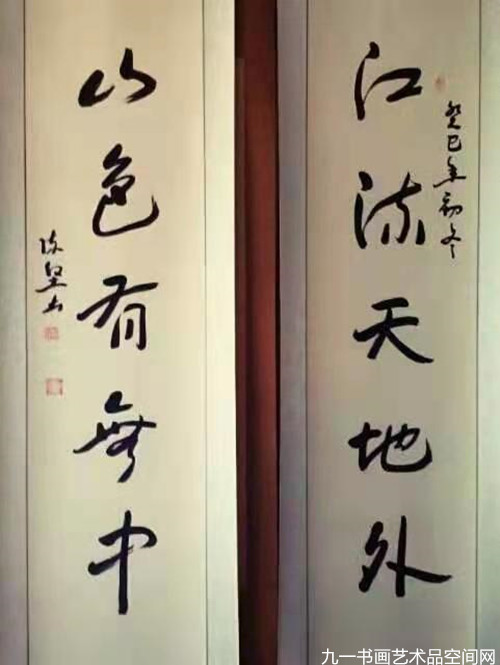 癸巳年初冬
江流天地外
山色有無中
九一书画艺术品空间网